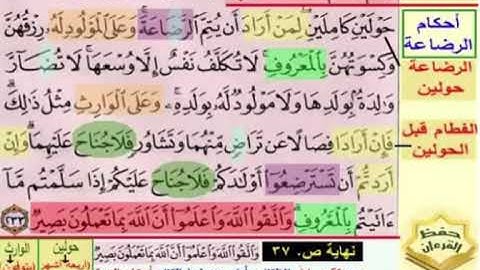 حَوْلَيْنِ كَامِلَيْنِ ۖ لِمَنْ أَرَادَ أَن يُتِمَّ ٱلرَّضَاعَةَ ۚ وَعَلَى ٱلْمَوْلُودِ لَهُۥ رِزْقُهُنَّ
وَكِسْوَتُهُنَّ بِٱلْمَعْرُوفِ ۚ لَا تُكَلَّفُ نَفْسٌ إِلَّا وُسْعَهَا ۚ لَا تُضَآرَّ
وَٰلِدَةٌۢ بِوَلَدِهَا وَلَا مَوْلُودٌ لَّهُۥ بِوَلَدِهِۦ ۚ وَعَلَى ٱلْوَارِثِ مِثْلُ ذَٰلِكَ ۗ
فَإِنْ أَرَادَا فِصَالًا عَن تَرَاضٍ مِّنْهُمَا وَتَشَاوُرٍ فَلَا جُنَاحَ عَلَيْهِمَا ۗ وَإِنْ
أَرَدتُّمْ أَن تَسْتَرْضِعُوٓا۟ أَوْلَٰدَكُمْ فَلَا جُنَاحَ عَلَيْكُمْ إِذَا سَلَّمْتُم مَّآ
ءَاتَيْتُم بِٱلْمَعْرُوفِ ۗ وَٱتَّقُوا۟ ٱللَّهَ وَٱعْلَمُوٓا۟ أَنَّ ٱللَّهَ بِمَا تَعْمَلُونَ بَصِيرٌ ٢٣٣
أحكام
الرضاعة
الرضاعة
حولين
الفطام قبل
الحولين
حفظ
القرآن
نهاية ص. ٣٧
وَٱتَّقُوا۟ ٱللَّهَ وَٱعْلَمُوٓا۟ أَنَّ ٱللَّهَ بِمَا تَعْمَلُونَ بَصِيرٌ
حولين
الوارث